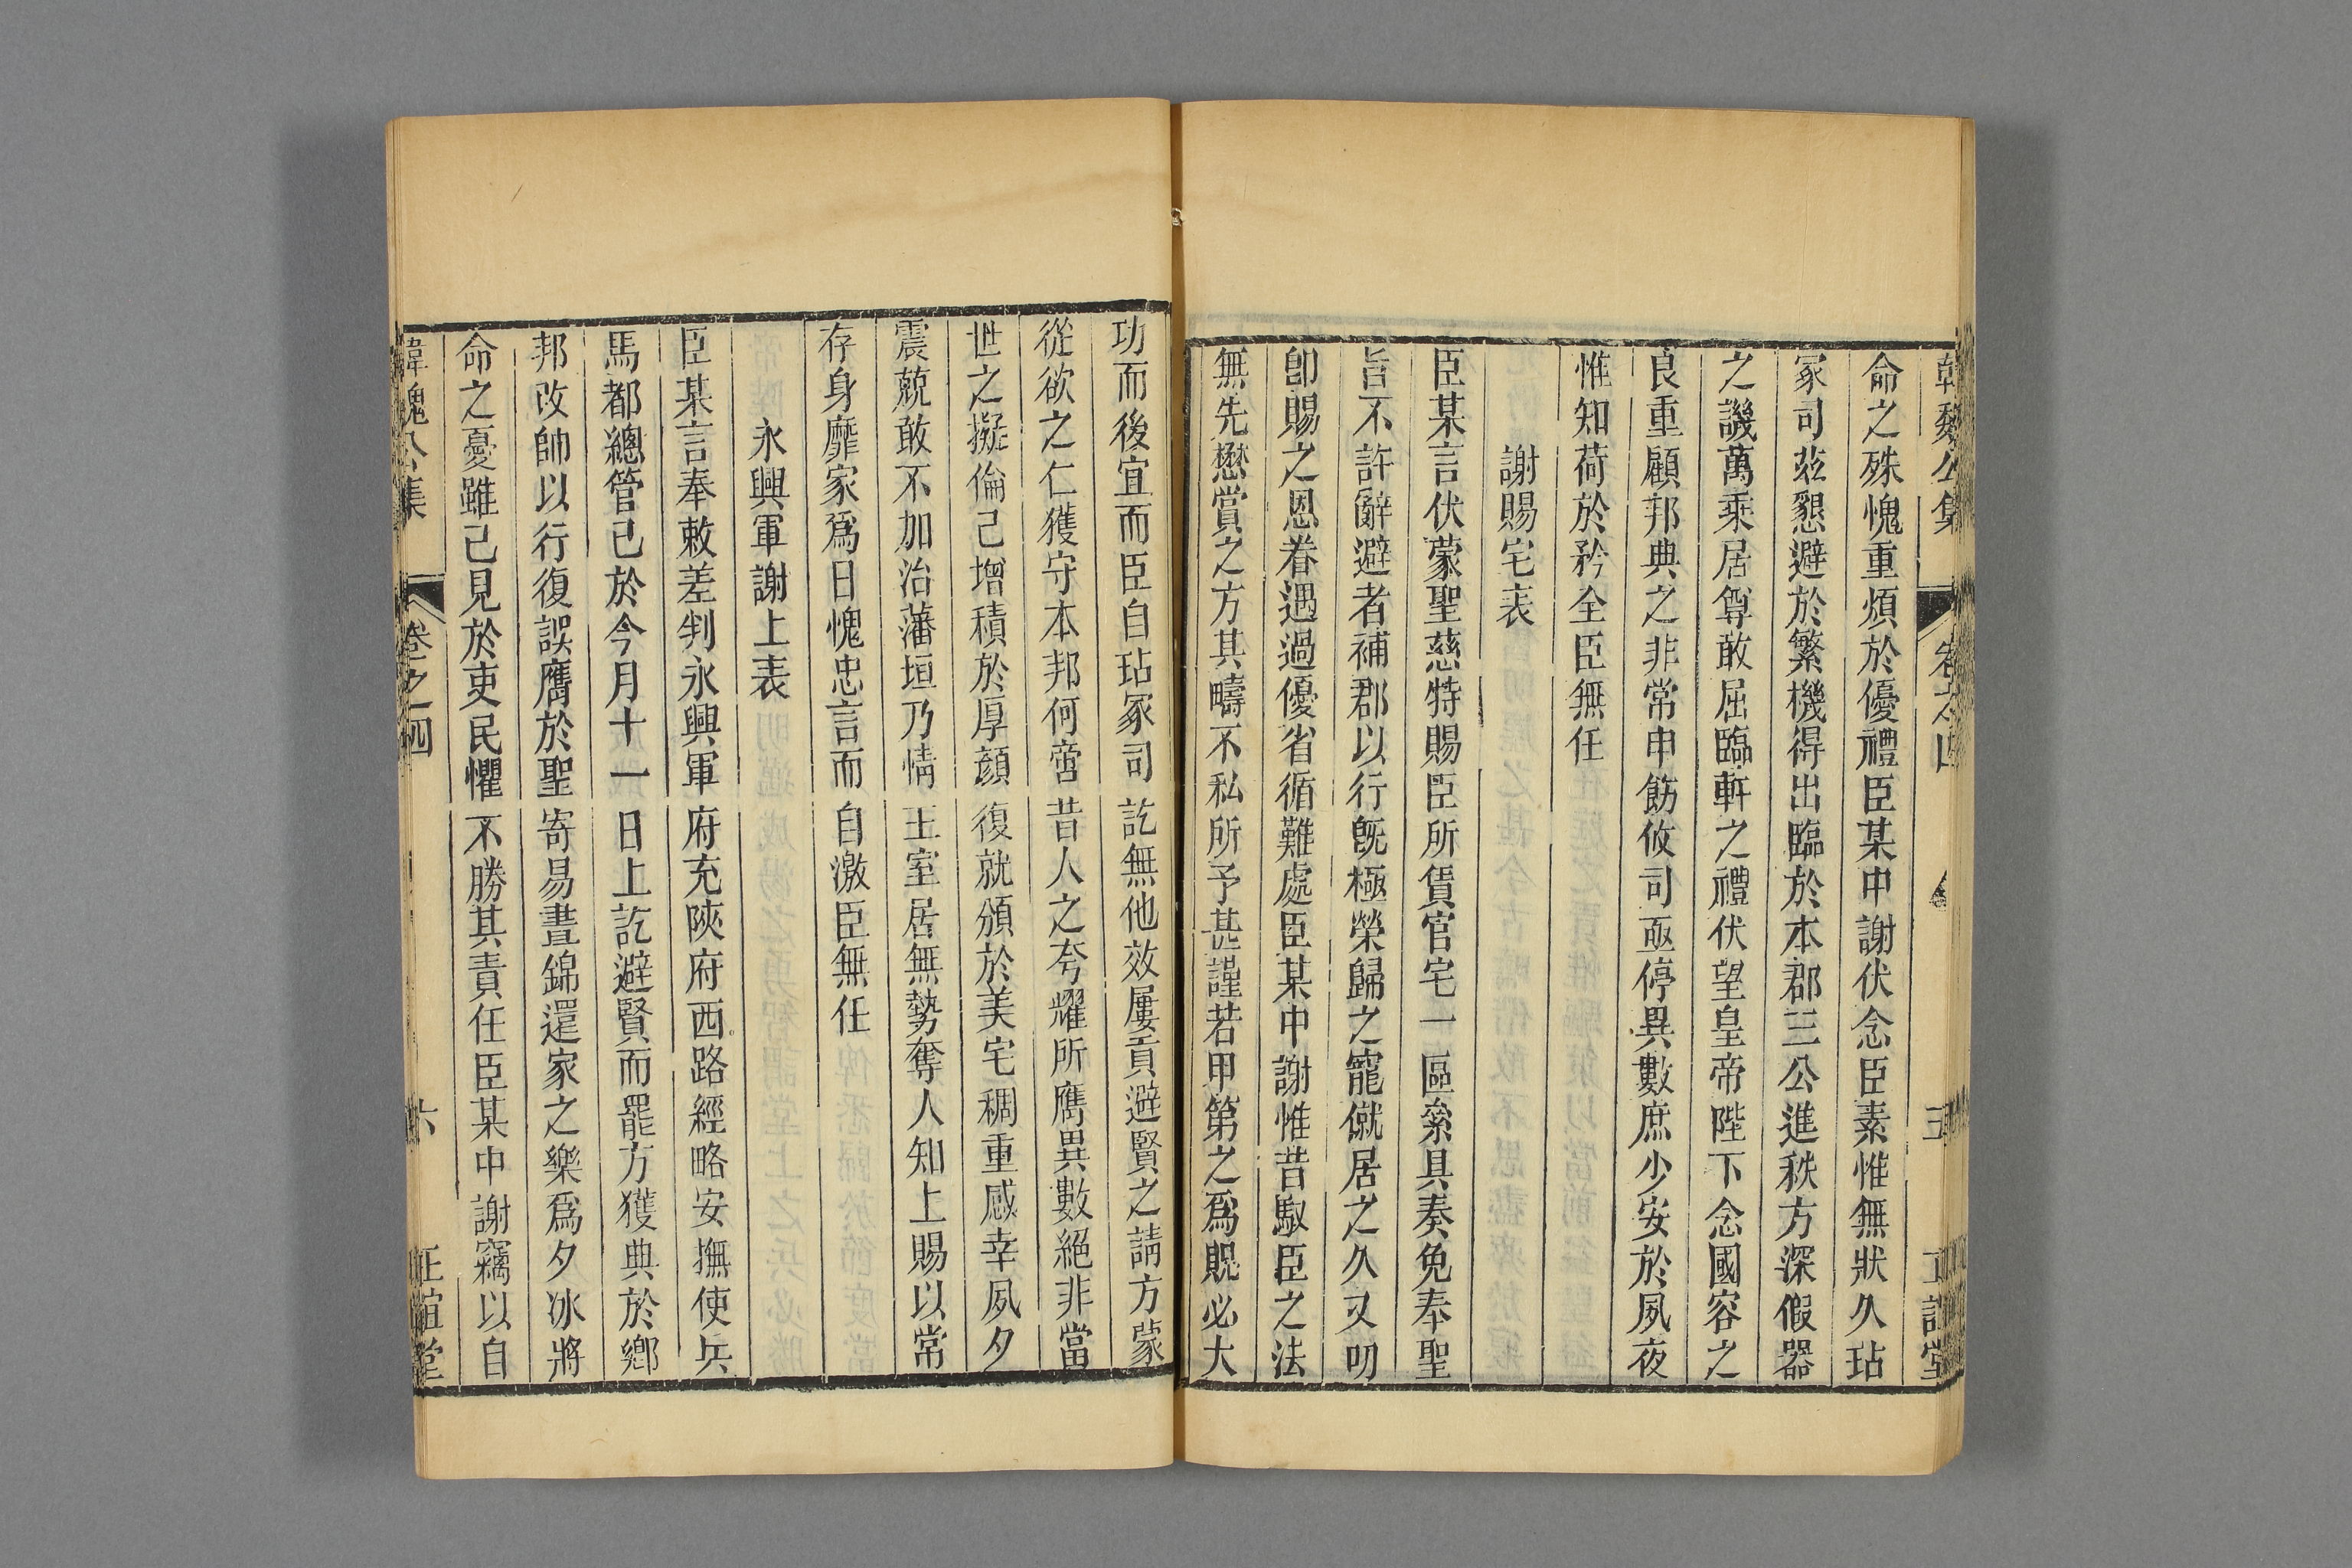 韓魏公集 卷之四 五 正誼堂
命之殊愧重煩於優禮臣某中謝伏念臣素惟無狀久玷
冢司茲懇避於繁機得出臨於本郡三公進秩方深假器
之譏萬乘居尊敢屈臨軒之禮伏望皇帝陛下念國容之
良重顧邦典之非常申飭攸司亟停異數庶少安於夙夜
惟知荷於矜全臣無任
謝賜宅表
臣某言伏蒙聖慈特賜臣所賃官宅一區絫具奏免奉聖
旨不許辭避者補郡以行旣極榮歸之寵僦居之久又叨
卽賜之恩眷遇過優省循難處臣某中謝惟昔馭臣之法
無先懋賞之方其疇不私所予甚謹若甲第之爲貺必大
功而後宜而臣自玷冢司訖無他效屢貢避賢之請方蒙
從欲之仁獲守本邦何啻昔人之夸耀所膺異數絕非當
世之擬倫已增積於厚顔復就頒於美宅稠重感幸夙夕
震兢敢不加治藩垣乃情王室居無勢奪人知上賜以常
存身靡家爲日愧忠言而自激臣無任
永興軍謝上表
臣某言奉敕差判永興軍府充陝府西路經略安撫使兵
馬都總管已於今月十一日上訖避賢而罷方獲典於鄉
邦改帥以行復誤膺於聖寄易晝錦還家之樂爲夕冰將
命之憂雖已見於吏民懼不勝其責任臣某中謝竊以自
韓魏公集 卷之四 六 正誼堂